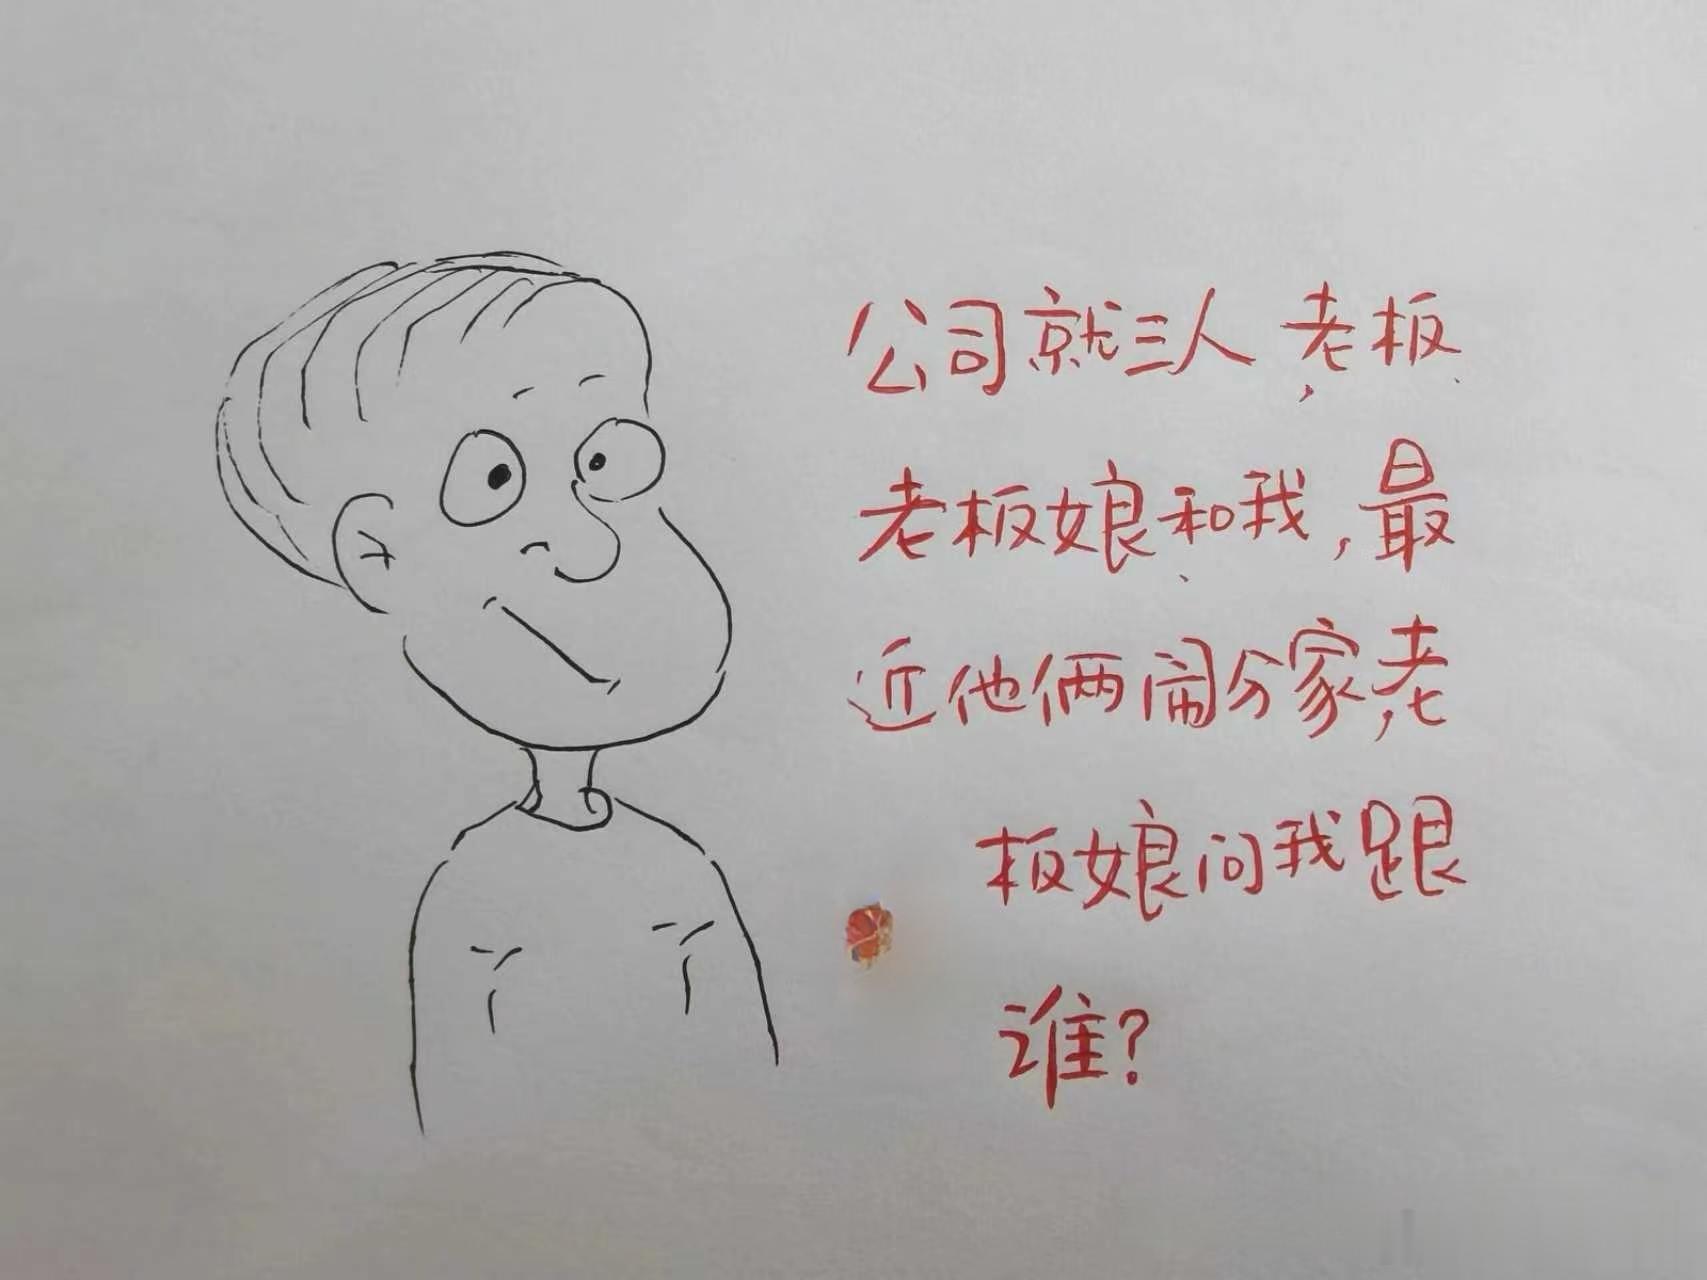 公司就三人,老板、
老板娘和我,最
近他俩闹分家,老
板娘问我跟
谁?